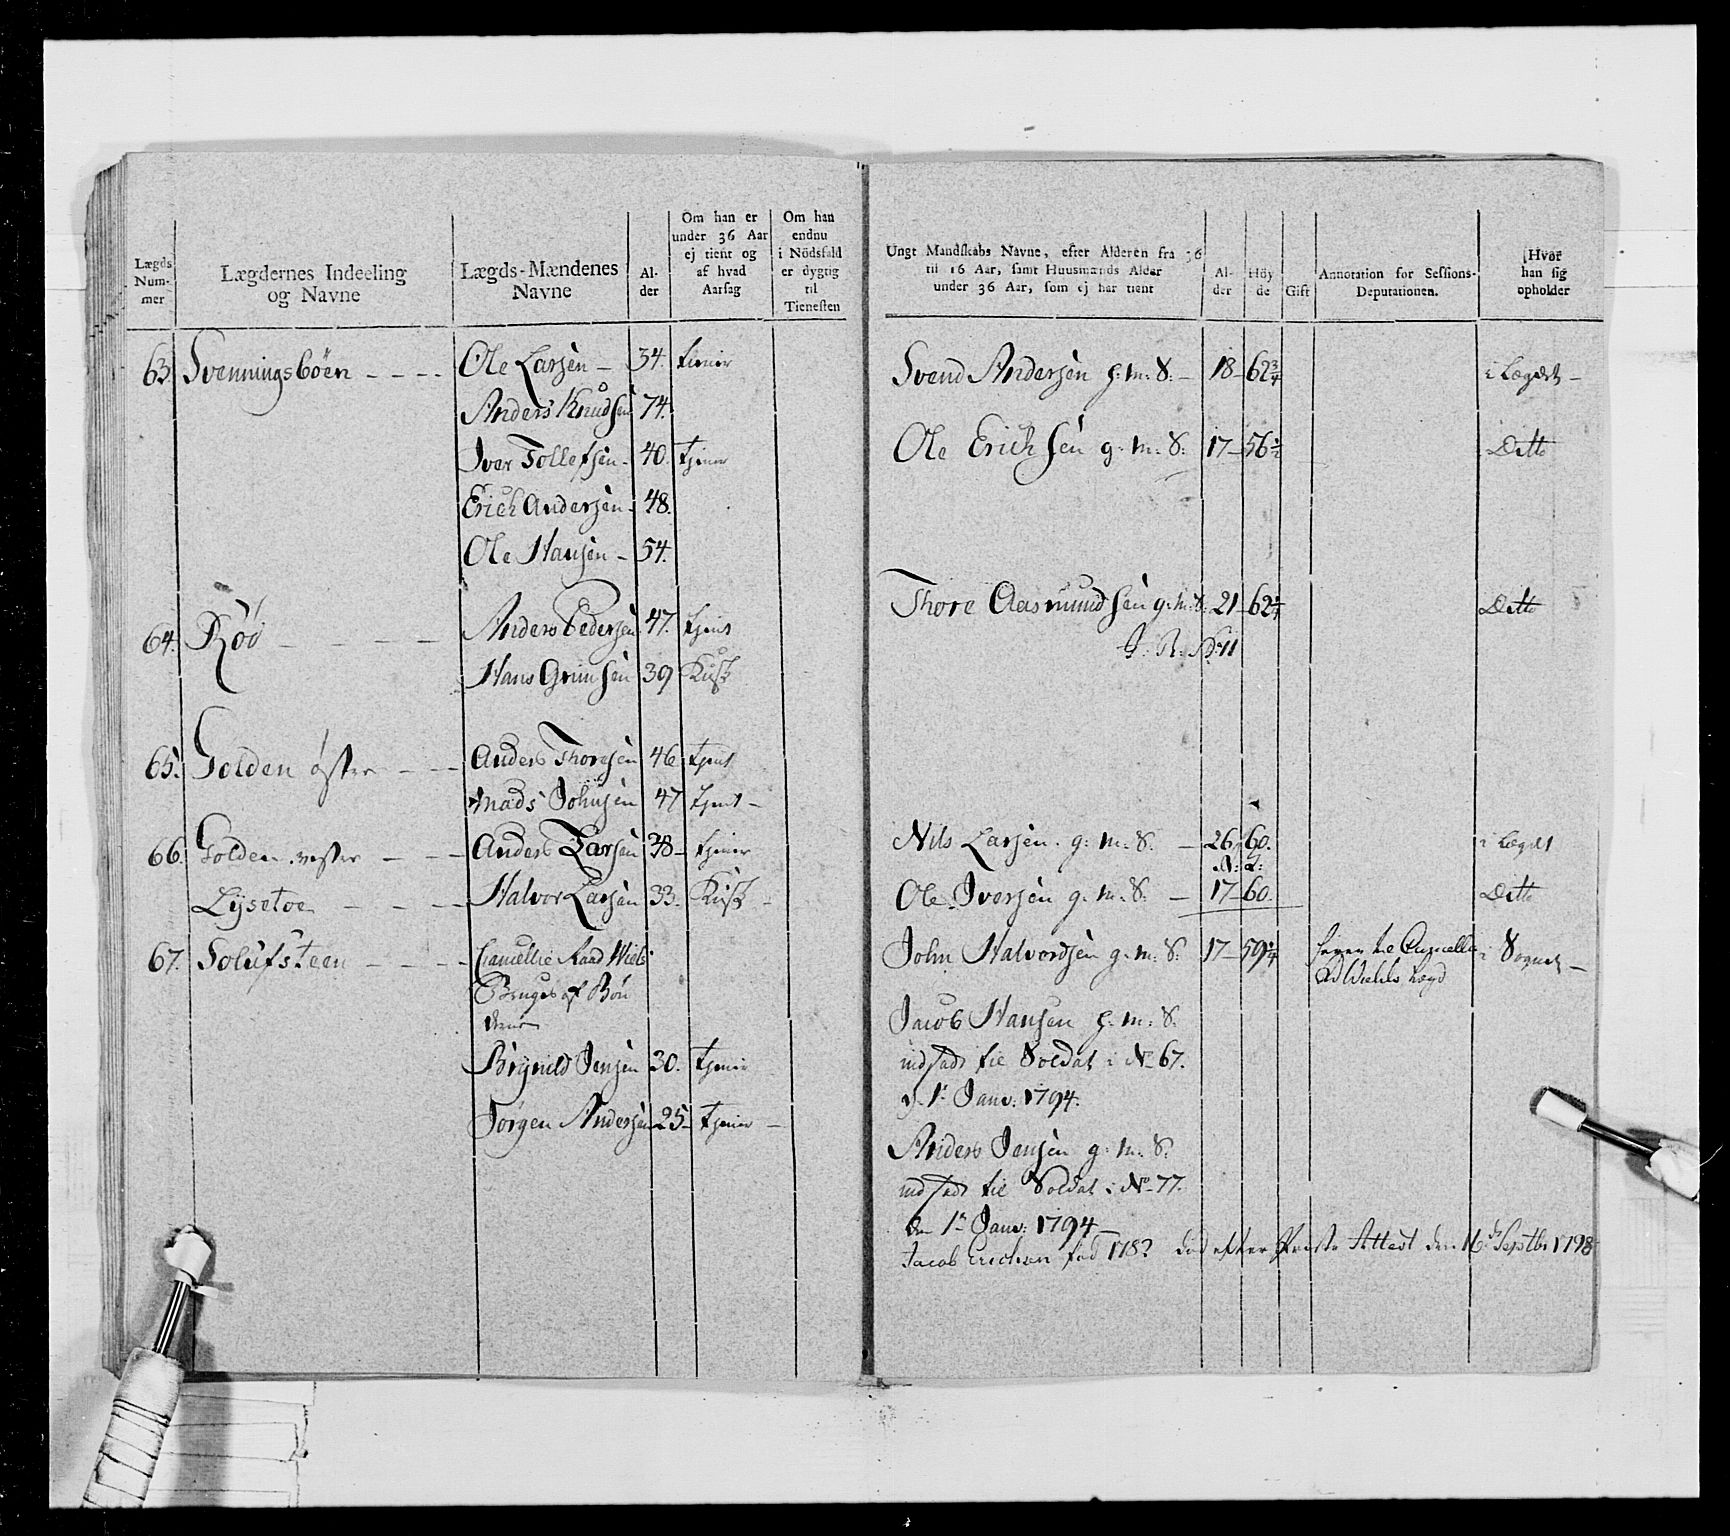 Lægds Num- mer
Lægdernes Indeeling og Navne
Lægds-Mændenes Navne
Al- der
Om han er under 36 Aar ej tient og af hvad Aarsag
Om han endnu i Nödsfald er dygtig til Tienesten
63. Svenningsböen - - - - Ole Larsen - 34. tiener
Anders Knudsen 74.
Iver Tollefsen - 40. tjener
Erich Andersen - 48.
Ole Hansen - 54.
64. Röö - - - Anders Pedersen 47. tjent
Hans Grimsen 39 Kusk
65. Golden öster - - - Anders Thoresen 46 tjent
Mads Johnsen 47 tjent -
66. Golden vester - - - Anders Larsen 38 - tjener
Lysetoe - - - Halvor Larsen 33. Kusk -
67. Solufsteen - - - Cancellie Raad Wiels
Bruges af Bön
derne
Brynild Jensen 30. tjener
Jörgen Andersen 25 - tjener -
Ungt Mandskabs Navne, efter Alderen fra 36 til 16 Aar, samt Huusmænds Alder under 36 Aar, som ej har tient
Al- der
Höy de
Gift
Annotation for Sessions- Deputationen.
Hvor han sig opholder
Svend Andersen g: m: S: - 18 - 62 3/4 i Lægdet -
Ole Erichsen g: m: S: 17 - 56 1/2 Ditto
Thore Aasmundsen g: m: S: 21 62 1/4 Ditto
Nils Larsen. g: m: S. - 26 60. i Lægdet
Ole Iversen g: m: S: - 17 - 60. Ditto
John Halvordsen g: m: S: 17 - 59 1/4 i Sognet -
Jacob Hansen g: m: S.
indsadt til Soldat i No 67.
d. 1te Janv: 1794.
Anders Jensen g: m: S.
indsadt til Soldat i No 77.
den 1te Janv: 1794 -
Jacob Erichsen föd 1783 död efter Præste Attest den 16de Septbr 1798